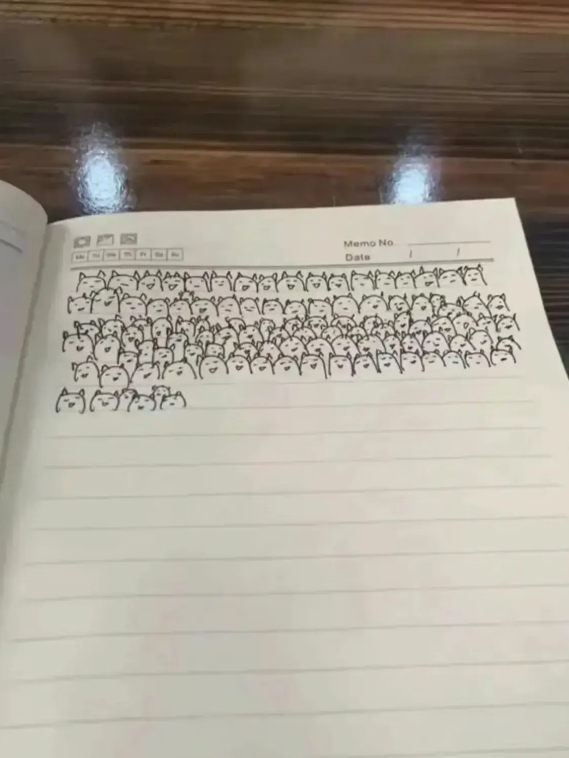 Mo Tu We Th Fr Sa Su
Memo No.
Date / /